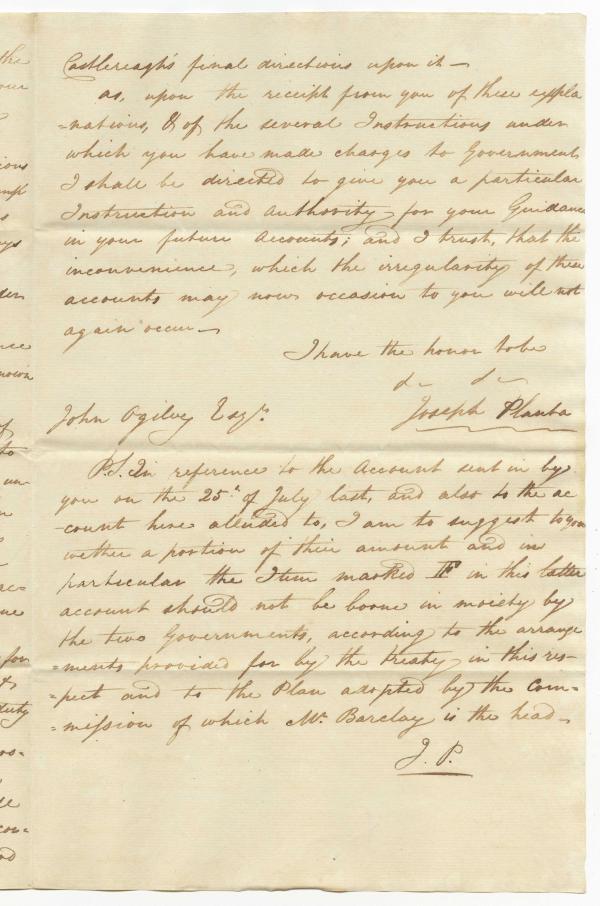 Castlereagh's final directions upon it –
as, upon the receipt from you of these expla
=nations, & of the several Instructions under
which you have made charges to Government
I shall be directed to give you a particular
Instruction and Authority for your Guidance
in your future Accounts; and I trust, that the
inconvenience, which the irregularity of these
accounts may now occasion to you will not
again occur –
I have the honor to be
d– d–
John Ogilvy Esqr. Joseph Planta
P.S. In reference to the Account sent in by
you on the 25th of July last, and also to the ac
-count here aluded to, I am to suggest to you
wether a portion of their amount and in
particular the Item marked F in this latter
account should not be borne in moiety by
the two Governments, according to the arrange
=ments provided for by the treaty in this res-
-pect and to the Plan adopted by the Com-
-mission of which Mr. Barclay is the head –
J. P.